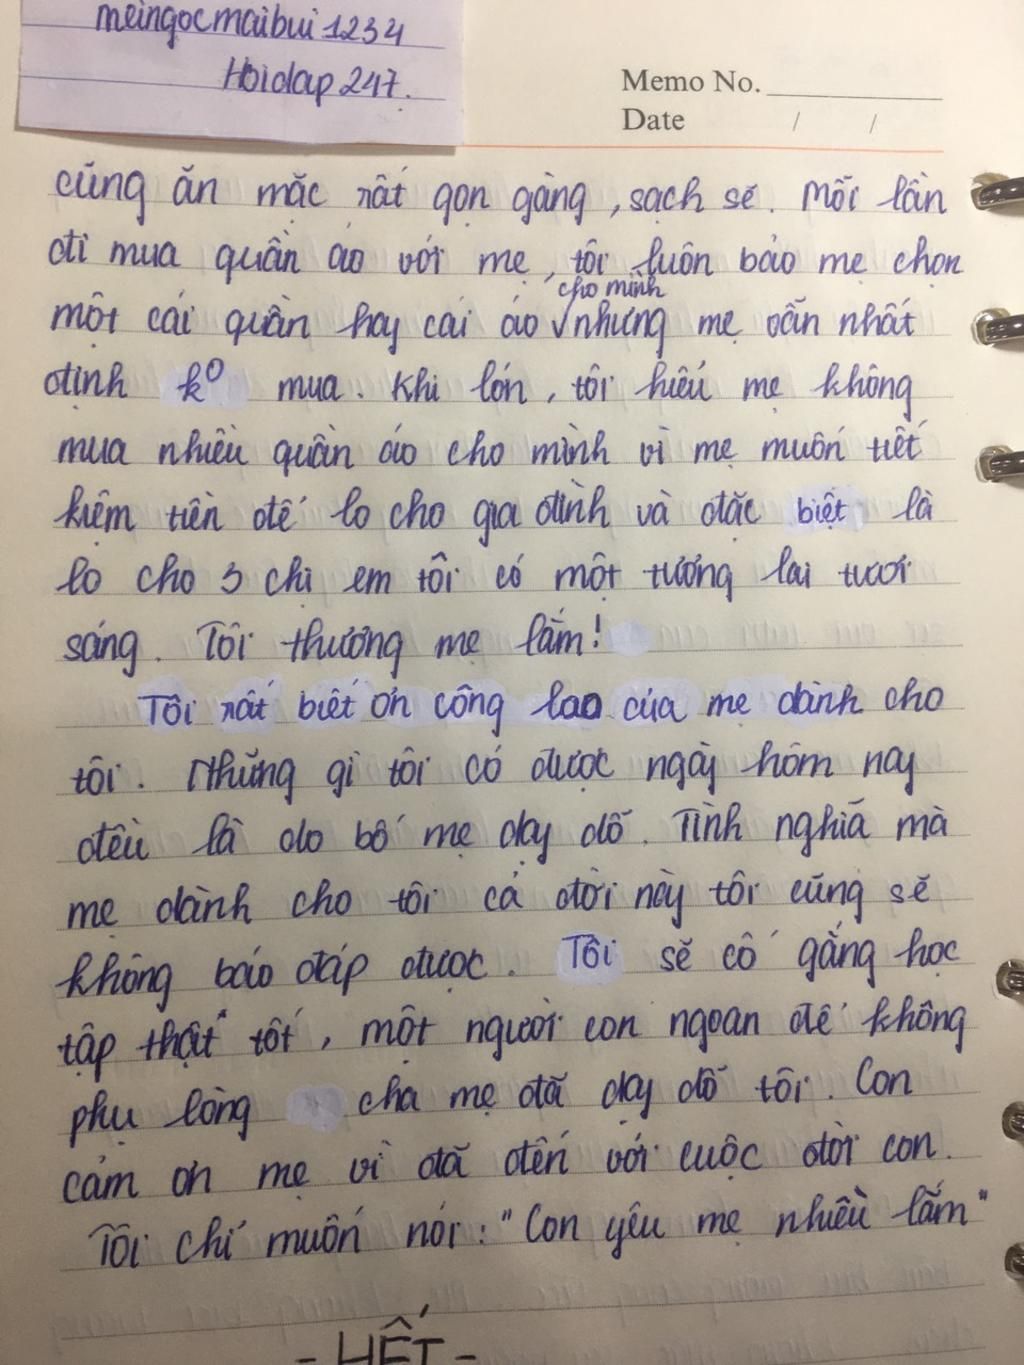 meingocmaibui1234
Hoidap247.
Memo No.
Date / /
cũng ăn mặc rất gọn gàng, sạch sẽ. Mỗi lần
đi mua quần áo với mẹ, tôi luôn bảo mẹ chọn
cho mình
một cái quần hay cái áo √ nhưng mẹ vẫn nhất
định k⁰ mua. Khi lớn, tôi hiểu mẹ không
mua nhiều quần áo cho mình vì mẹ muốn tiết
kiệm tiền để lo cho gia đình và đặc biệt là
lo cho 3 chị em tôi có một tương lai tươi
sáng. Tôi thương mẹ lắm!
Tôi rất biết ơn công lao của mẹ dành cho
tôi. Những gì tôi có được ngày hôm nay
đều là do bố mẹ dạy dỗ. Tình nghĩa mà
mẹ dành cho tôi cả đời này tôi cũng sẽ
không báo đáp được. Tôi sẽ cố gắng học
tập thật tốt, một người con ngoan để không
phụ lòng cha mẹ đã dạy dỗ tôi. Con
cảm ơn mẹ vì đã đến với cuộc đời con.
Tôi chỉ muốn nói: "Con yêu mẹ nhiều lắm"
- HẾT -